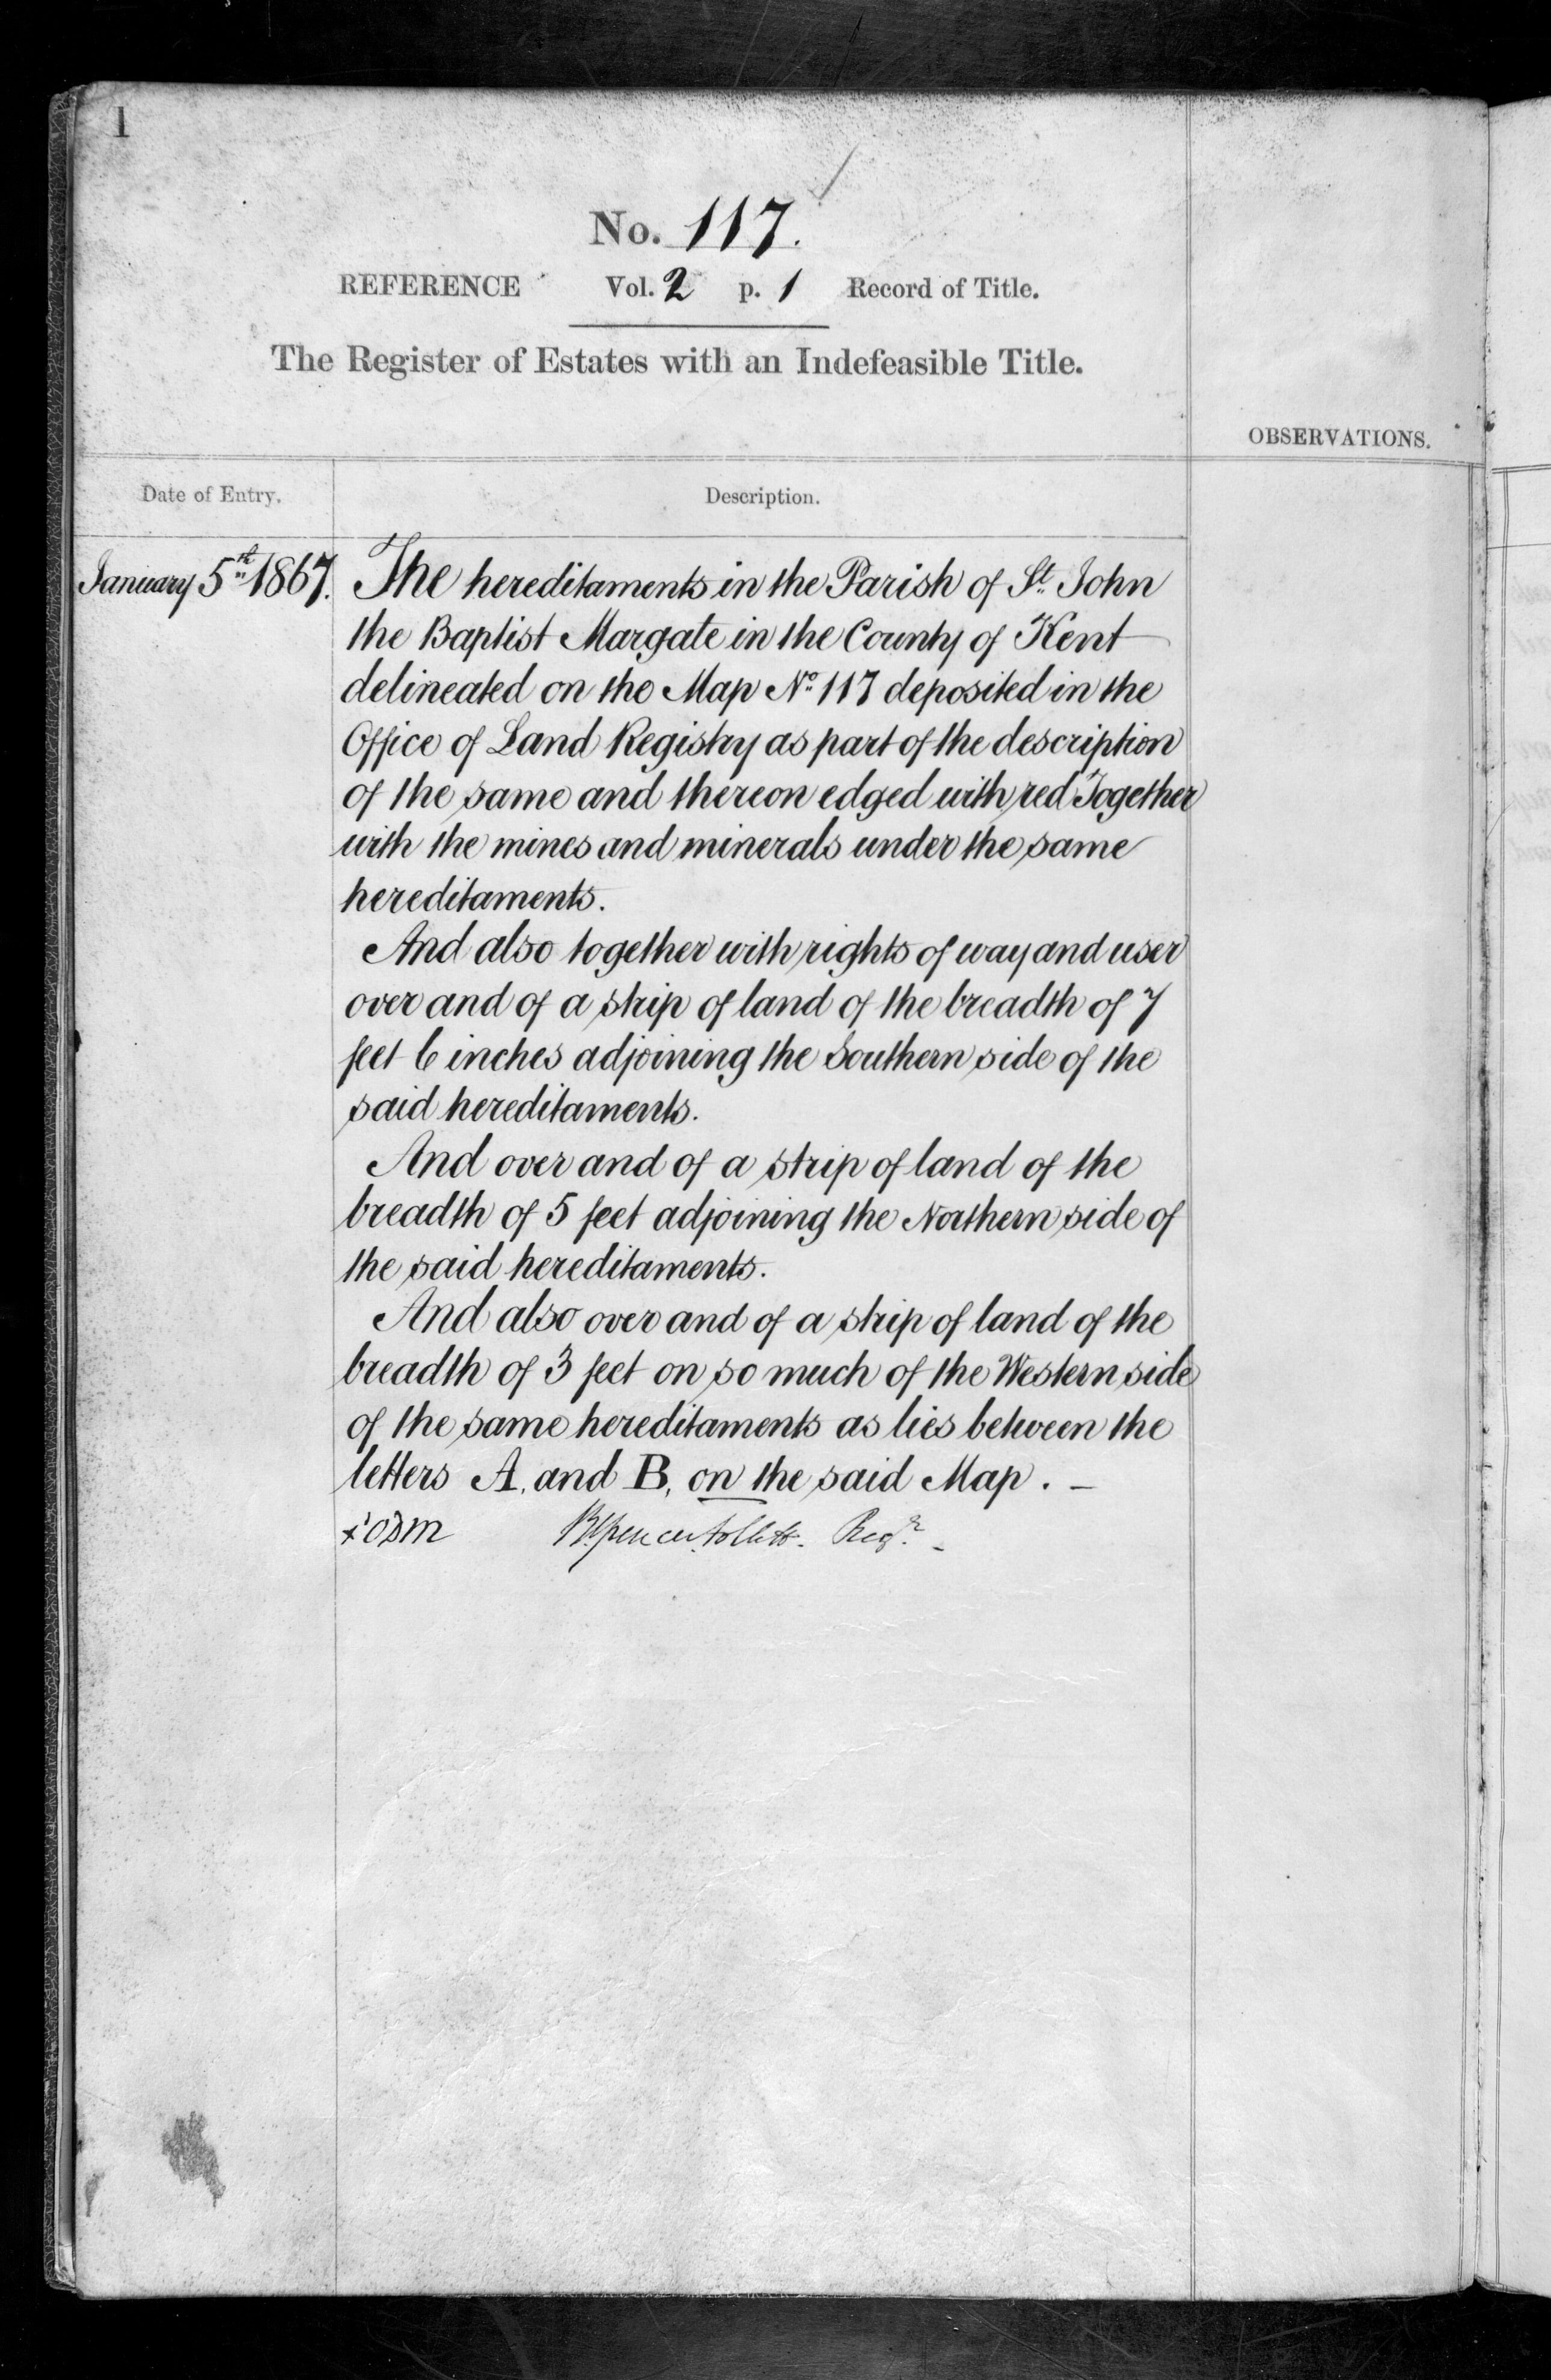 1
No. 117.
REFERENCE Vol. 2 p. 1 Record of Title.
The Register of Estates with an Indefeasible Title.
OBSERVATIONS.
Date of Entry. Description.
January 5th 1867. The hereditaments in the Parish of St. John
the Baptist Margate in the County of Kent
delineated on the Map No. 117 deposited in the
Office of Land Registry as part of the description
of the same and thereon edged with red Together
with the mines and minerals under the same
hereditaments.
And also together with rights of way and user
over and of a strip of land of the breadth of 7
feet 6 inches adjoining the Southern side of the
said hereditaments.
And over and of a strip of land of the
breadth of 5 feet adjoining the Northern side of
the said hereditaments.
And also over and of a strip of land of the
breadth of 3 feet on so much of the Western side
of the same hereditaments as lies between the
letters A. and B, on the said Map. –
Brent Spencer Follett. Regr. –